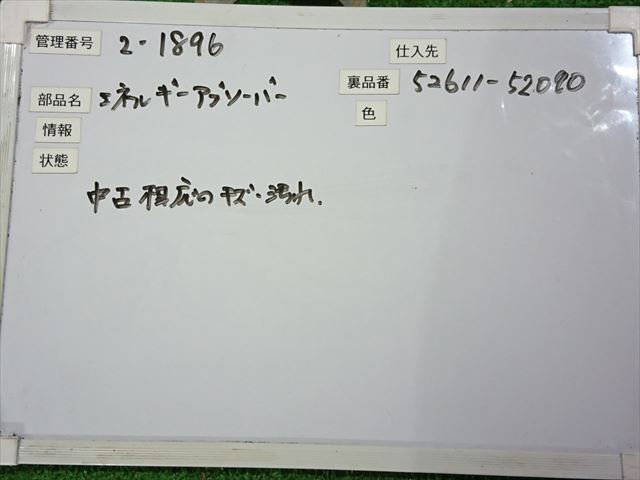 管理番号 2-1896
仕入先
部品名 エネルギーアブソーバー
裏品番 52611-52090
色
情報
状態
中古程度のキズ・汚れ.